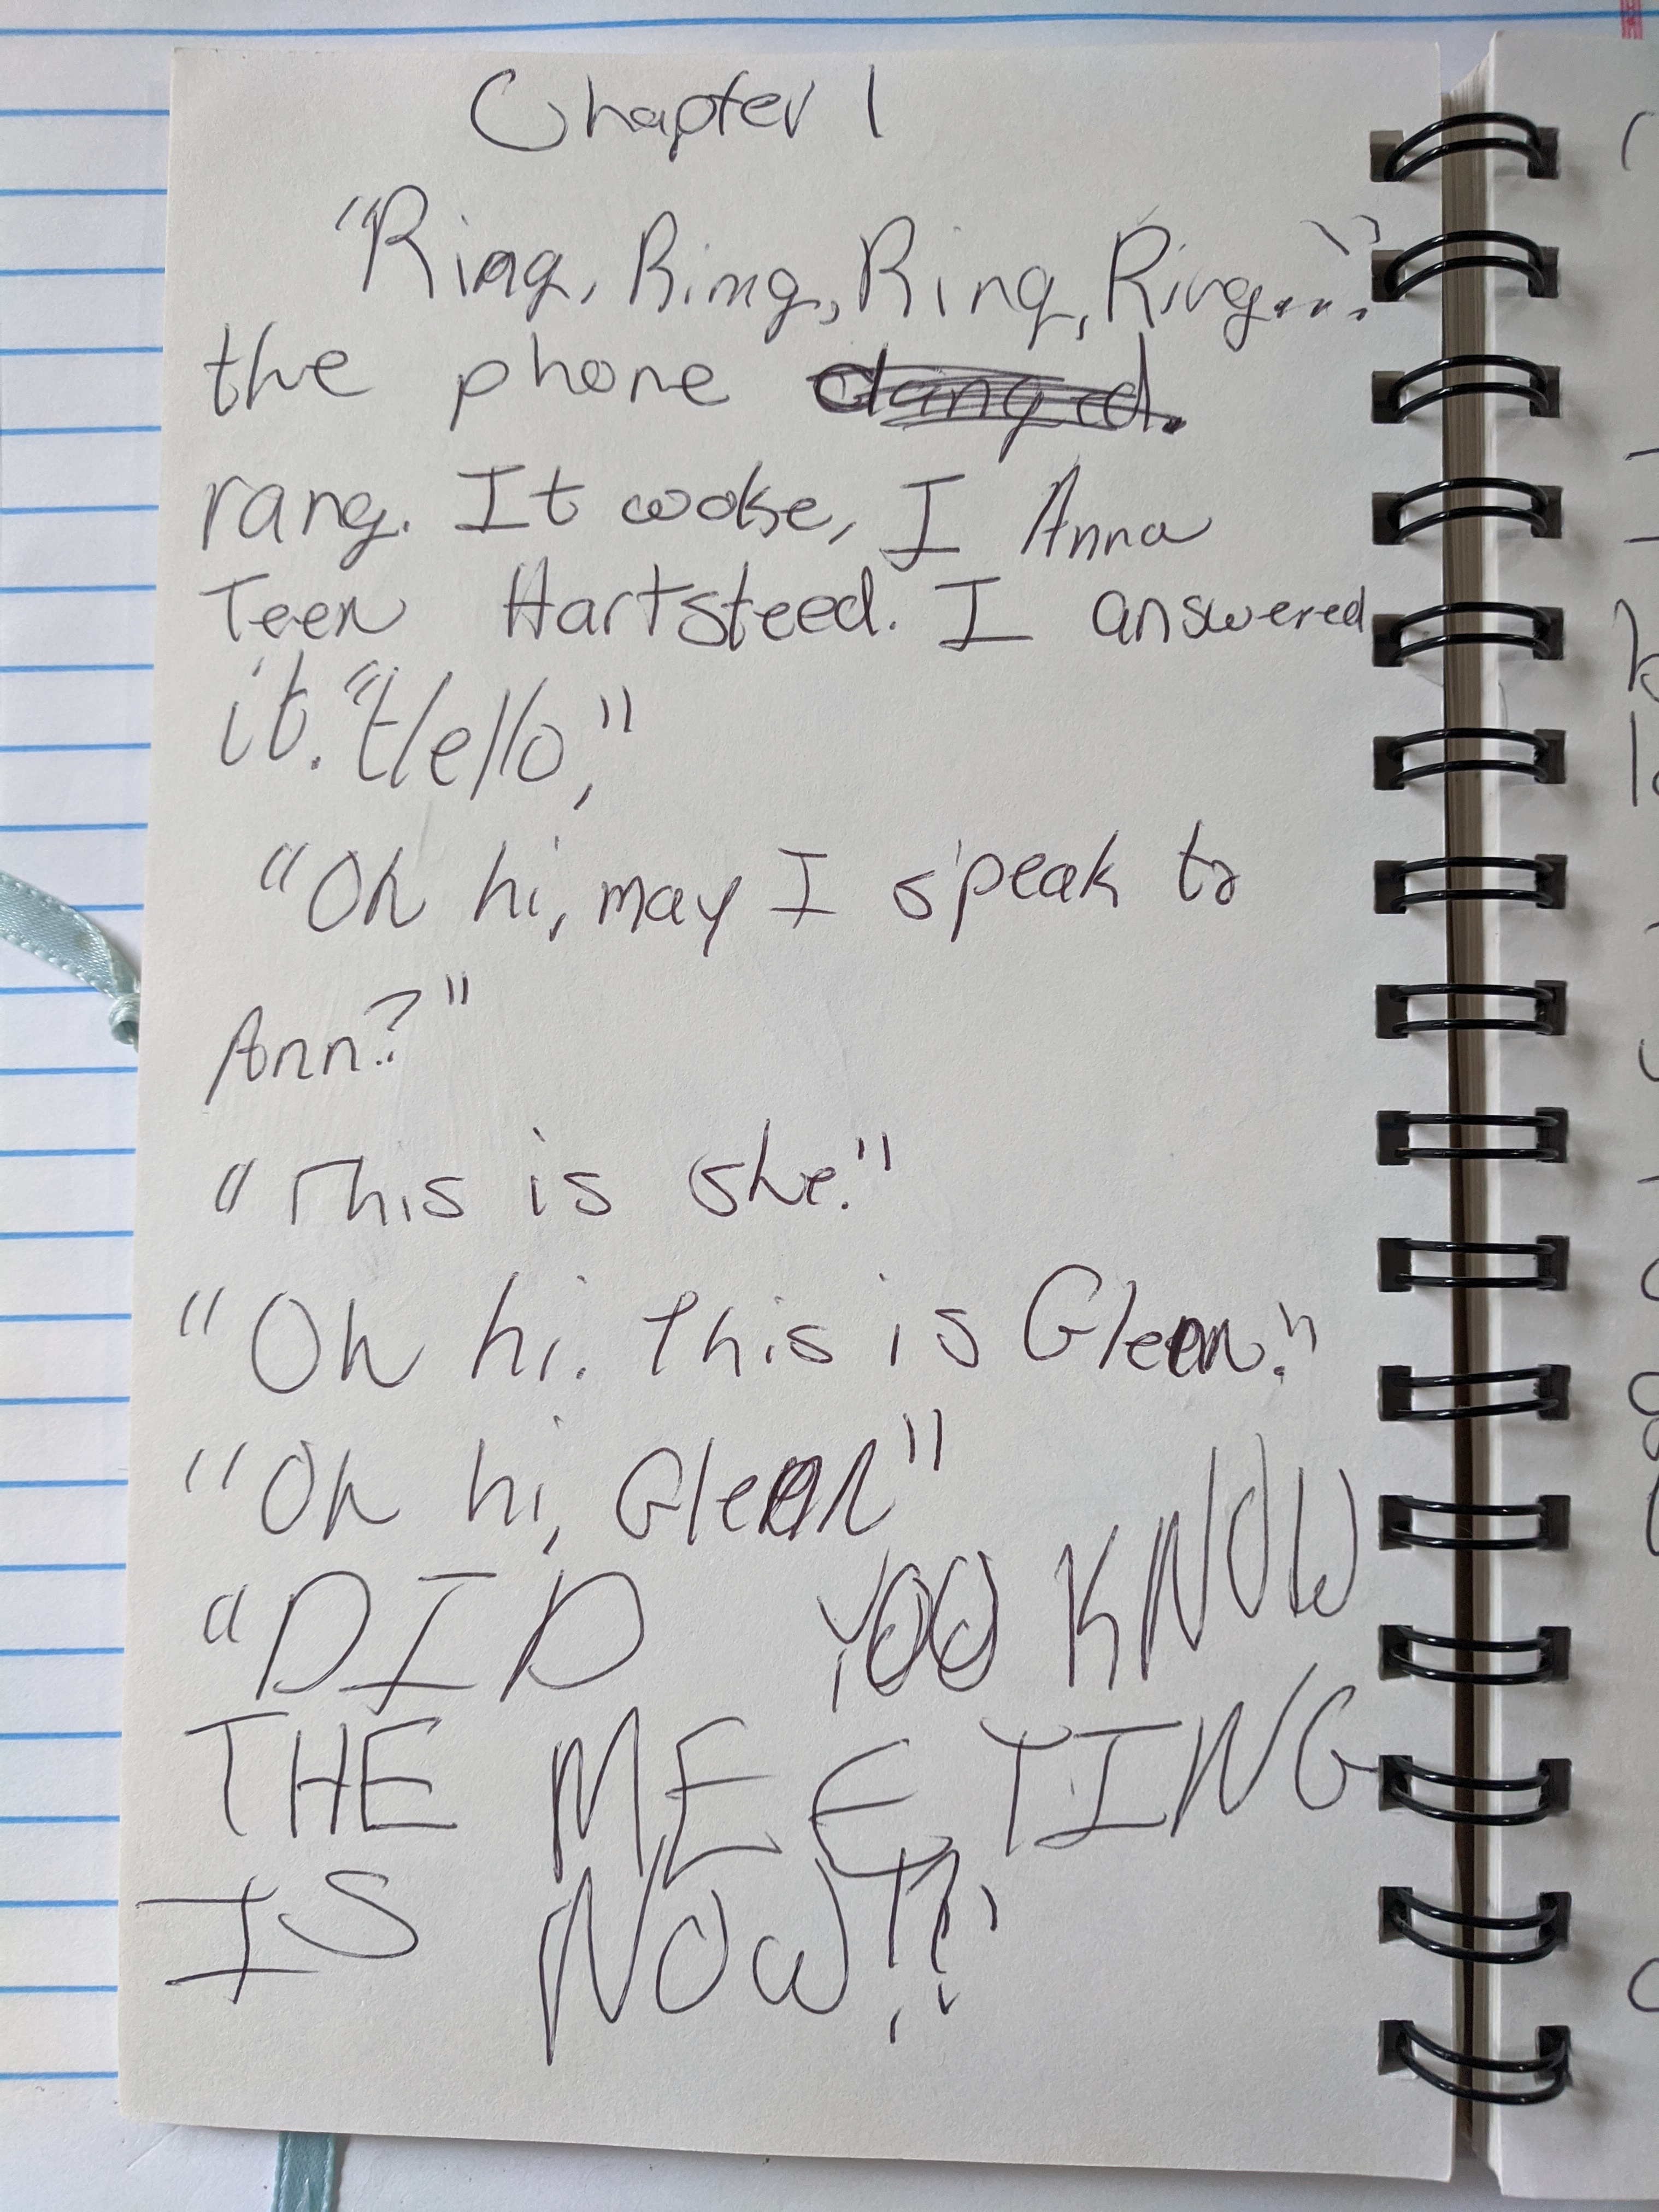 Chapter 1
"Ring, Ring, Ring, Ring..."
the phone clanged.
rang. It woke, I Anna
Teen Hartsteed. I answered
it. "Hello,"
"Oh hi, may I speak to
Ann?"
"This is she."
"Oh hi. This is Glenn."
"Oh hi, Glenn"
"DID YOU KNOW
THE MEETING
IS NOW!?"